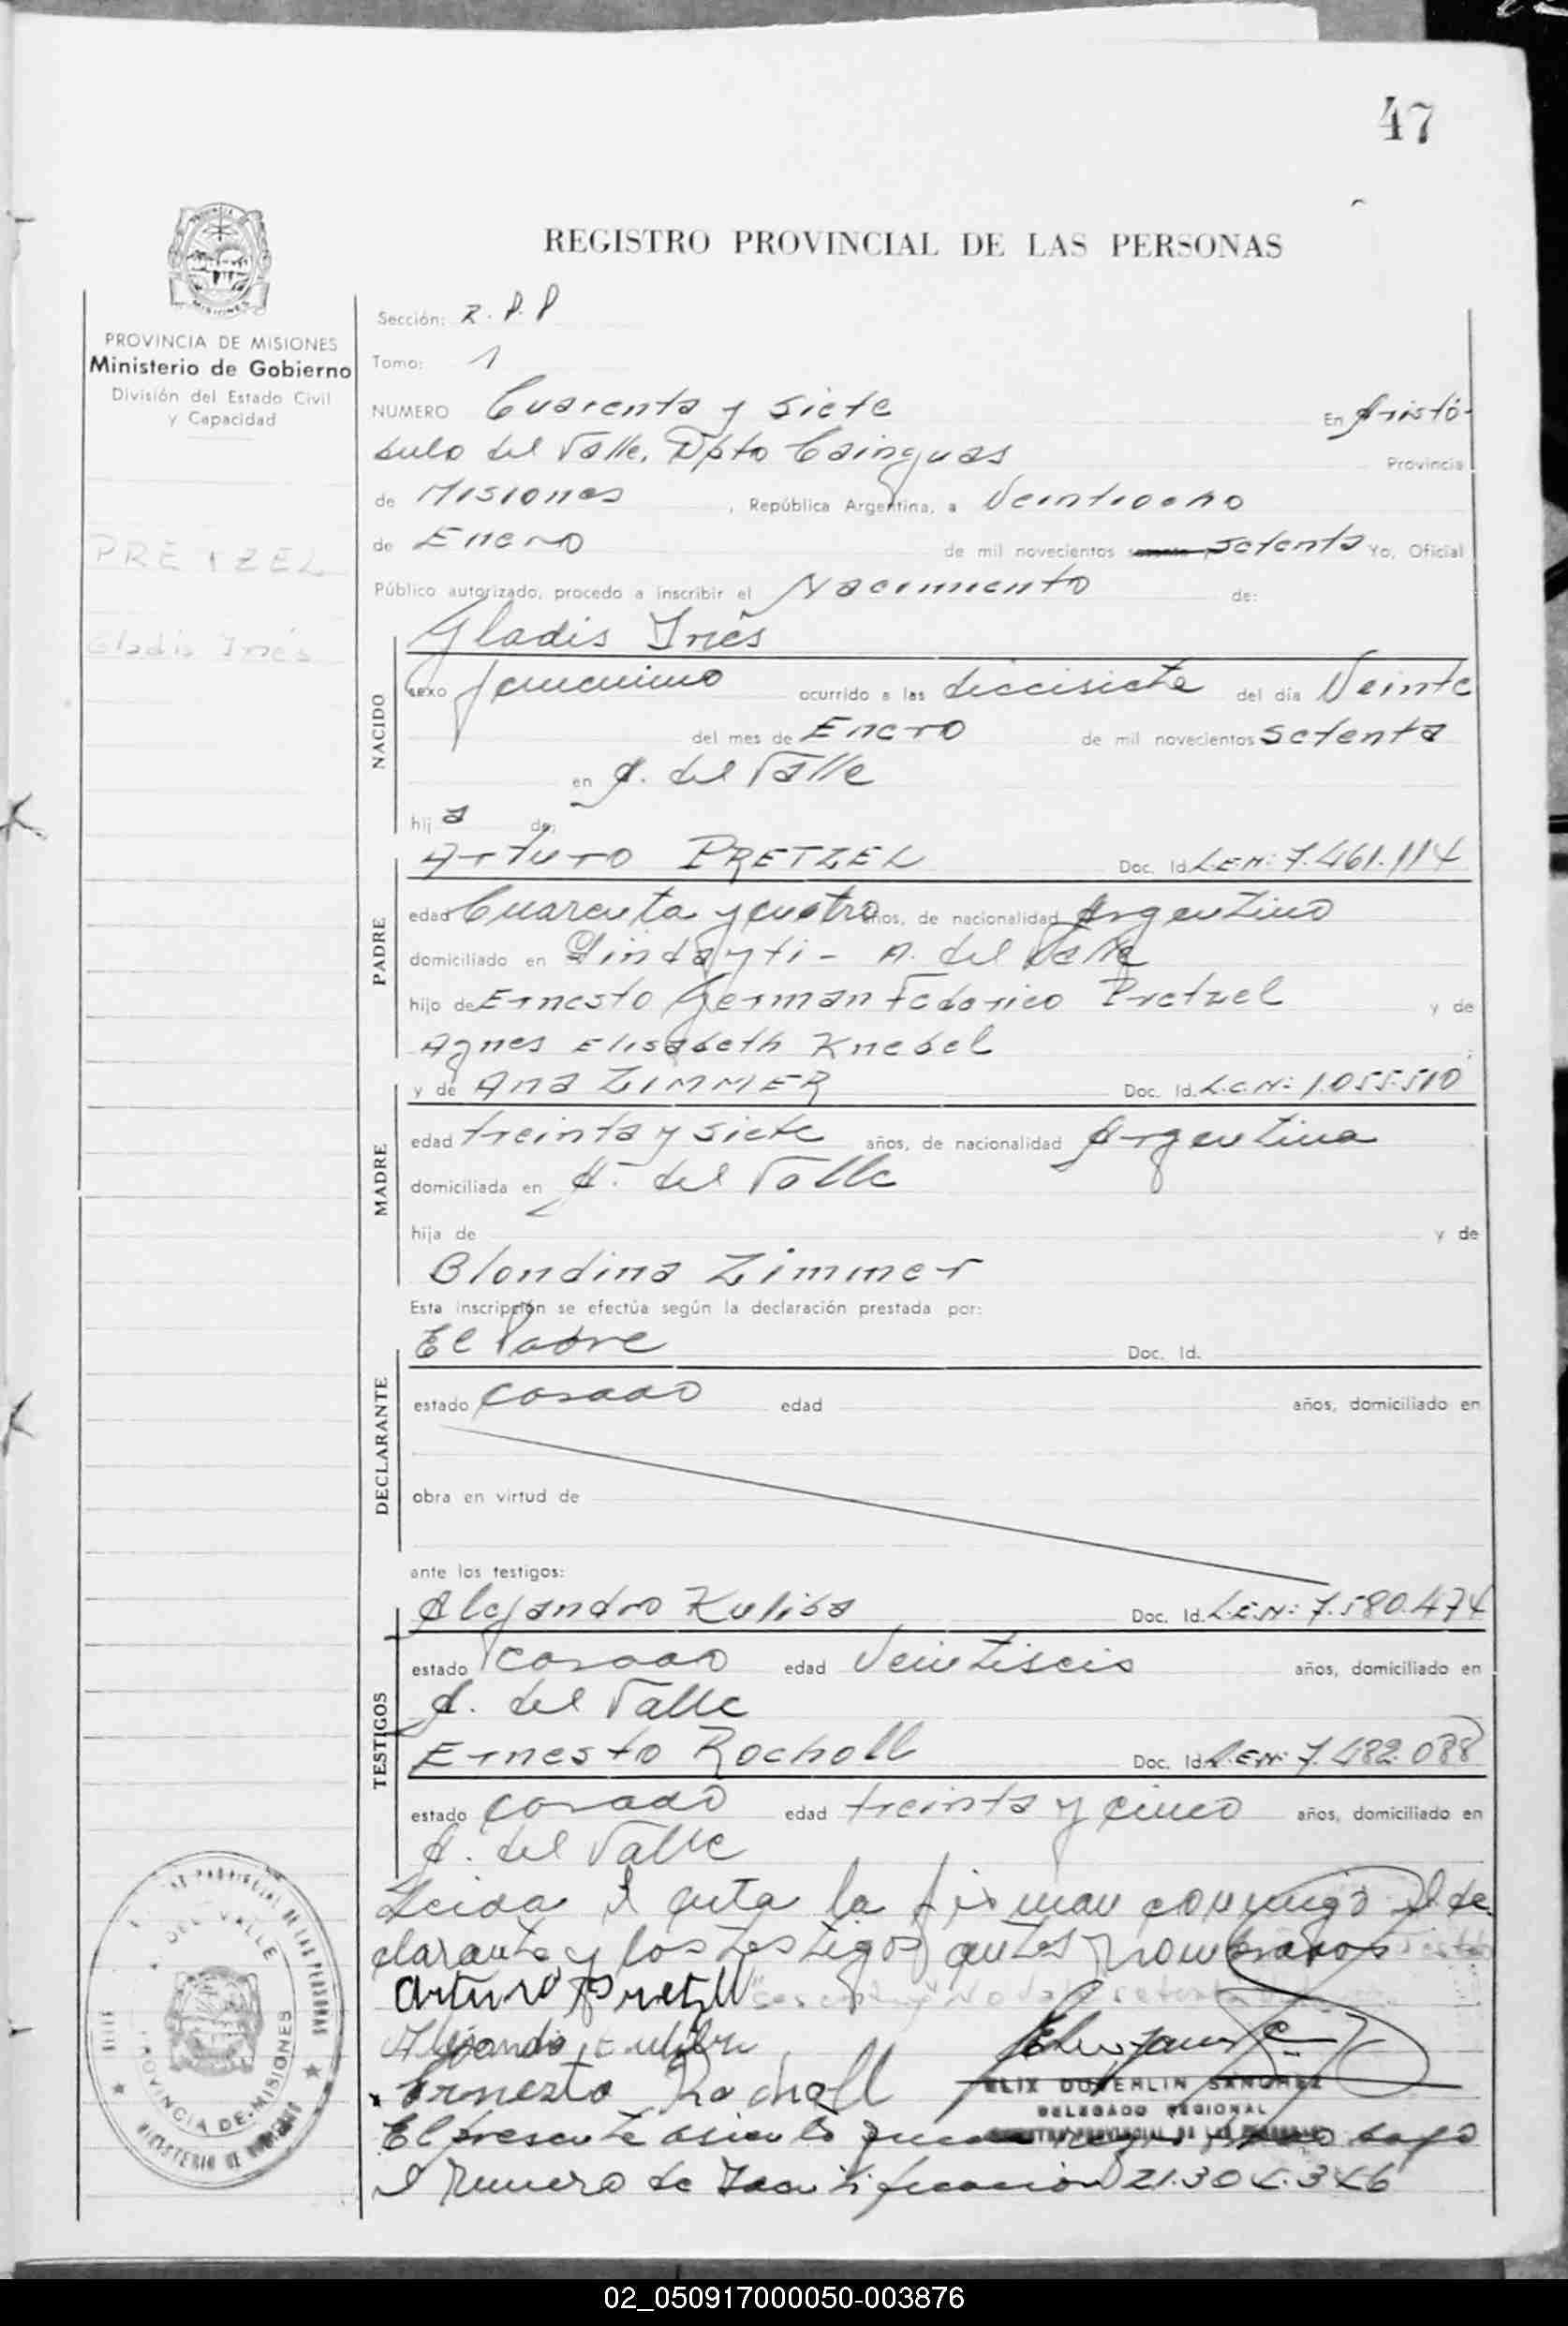 47
REGISTRO PROVINCIAL DE LAS PERSONAS
PROVINCIA DE MISIONES
Ministerio de Gobierno
División del Estado Civil
y Capacidad
PRETZEL
Gladis Inés
Sección: R.P.P
Tomo: 1
NUMERO Cuarenta y siete En Aristó-
bulo del Valle, Dpto Cainguas Provincia
de Misiones, República Argentina, a Veintiocho
de Enero de mil novecientos setenta Yo, Oficial
Público autorizado, procedo a inscribir el Nacimiento de:
NACIDO
Gladis Inés
sexo femenino ocurrido a las diecisiete del día Veinte
del mes de Enero de mil novecientos setenta
en A. del Valle
hija de:
PADRE
Arturo PRETZEL Doc. Id. L.E.Nº: 7.461.114
edad Cuarenta y cuatro años, de nacionalidad Argentino
domiciliado en Pindayti - A. del Valle
hijo de Ernesto German Federico Pretzel y de
Agnes Elisabeth Knebel
MADRE
y de Ana ZIMMER Doc. Id. L.C.Nº: 1.055.510
edad treinta y siete años, de nacionalidad Argentina
domiciliada en A. del Valle
hija de y de
Blondina Zimmer
Esta inscripción se efectúa según la declaración prestada por:
DECLARANTE
El Padre Doc. Id.
estado casado edad años, domiciliado en
obra en virtud de
ante los testigos:
TESTIGOS
Alejandro Kuliba Doc. Id. L.E.Nº: 7.580.474
estado casado edad Veintiseis años, domiciliado en
A. del Valle
Ernesto Rocholl Doc. Id. L.E.Nº: 7.482.088
estado casado edad treinta y cinco años, domiciliado en
A. del Valle
Leida el acta la firman conmigo el de
clarante y los testigos antes nombrados
Arturo Pretzel
Ernesto Rocholl
DELEGADO REGIONAL
El presente asiento queda registrado bajo
el numero de Identificacion 21.304.346
A. DEL VALLE
PROVINCIA DE MISIONES
02_050917000050-003876